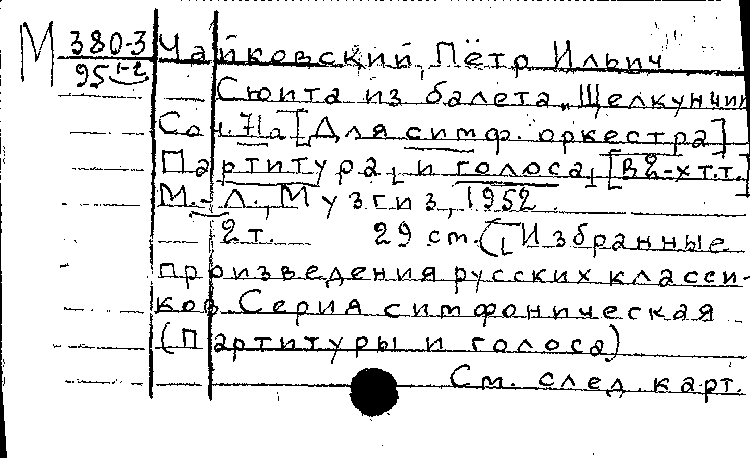 М 380-3 Чайковский, Пётр Ильич
95 1-2
Сюита из балета „Щелкунчик
Соч. 71а [Для симф. оркестра]
Партитура [и голоса] [в 2-х т.т.]
М.-Л., Музгиз, 1952.
2 т. 29 см. ([Избранные
произведения русских класси-
ков. Серия симфоническая
(Партитуры и голоса)
См. след. карт.